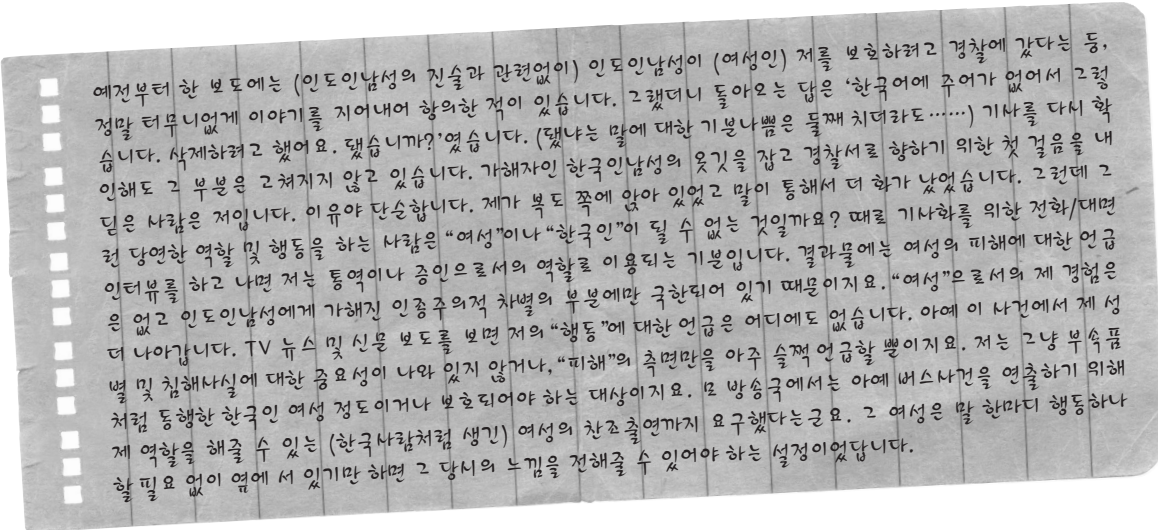 예전부터 한 보도에는 (인도인남성의 진술과 관련없이) 인도인남성이 (여성인) 저를 보호하려고 경찰에 갔다는 둥,
정말 터무니없게 이야기를 지어내어 항의한 적이 있습니다. 그랬더니 돌아오는 답은 ‘한국어에 주어가 없어서 그렇
습니다. 삭제하려고 했어요. 됐습니까?’였습니다. (됐냐는 말에 대한 기분나쁨은 둘째 치더라도……) 기사를 다시 확
인해도 그 부분은 고쳐지지 않고 있습니다. 가해자인 한국인남성의 옷깃을 잡고 경찰서로 향하기 위한 첫 걸음을 내
딛은 사람은 저입니다. 이유야 단순합니다. 제가 복도 쪽에 앉아 있었고 말이 통해서 더 화가 났었습니다. 그런데 그
런 당연한 역할 및 행동을 하는 사람은 “여성”이나 “한국인”이 될 수 없는 것일까요? 때로 기사화를 위한 전화/대면
인터뷰를 하고 나면 저는 통역이나 증인으로서의 역할로 이용되는 기분입니다. 결과물에는 여성의 피해에 대한 언급
은 없고 인도인남성에게 가해진 인종주의적 차별의 부분에만 국한되어 있기 때문이지요. “여성”으로서의 제 경험은
더 나아갑니다. TV 뉴스 및 신문 보도를 보면 저의 “행동”에 대한 언급은 어디에도 없습니다. 아예 이 사건에서 제 성
별 및 침해사실에 대한 중요성이 나와 있지 않거나, “피해”의 측면만을 아주 슬쩍 언급할 뿐이지요. 저는 그냥 부속품
처럼 동행한 한국인 여성 정도이거나 보호되어야 하는 대상이지요. 모 방송국에서는 아예 버스사건을 연출하기 위해
제 역할을 해줄 수 있는 (한국사람처럼 생긴) 여성의 찬조출연까지 요구했다는군요. 그 여성은 말 한마디 행동하나
할 필요 없이 옆에 서 있기만 하면 그 당시의 느낌을 전해줄 수 있어야 하는 설정이었답니다.